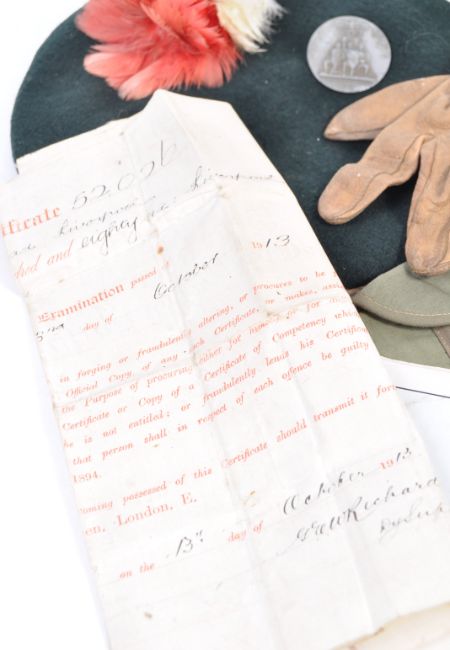 ificate 52.026
Liverpool
and eighty
Examination passed
October 1913
day of
in forging or fraudulently altering, or procures to be
Official Copy, of any such Certificate, or makes,
the Purpose of procuring either for himself or for
Certificate or Copy of a Certificate of Competency
he is not entitled; or fraudulently lends his Certificate
that person shall in respect of each offence be guilty
1894.
coming possessed of this Certificate should transmit it
London, E.
on the 13th day of October 1913
Richard